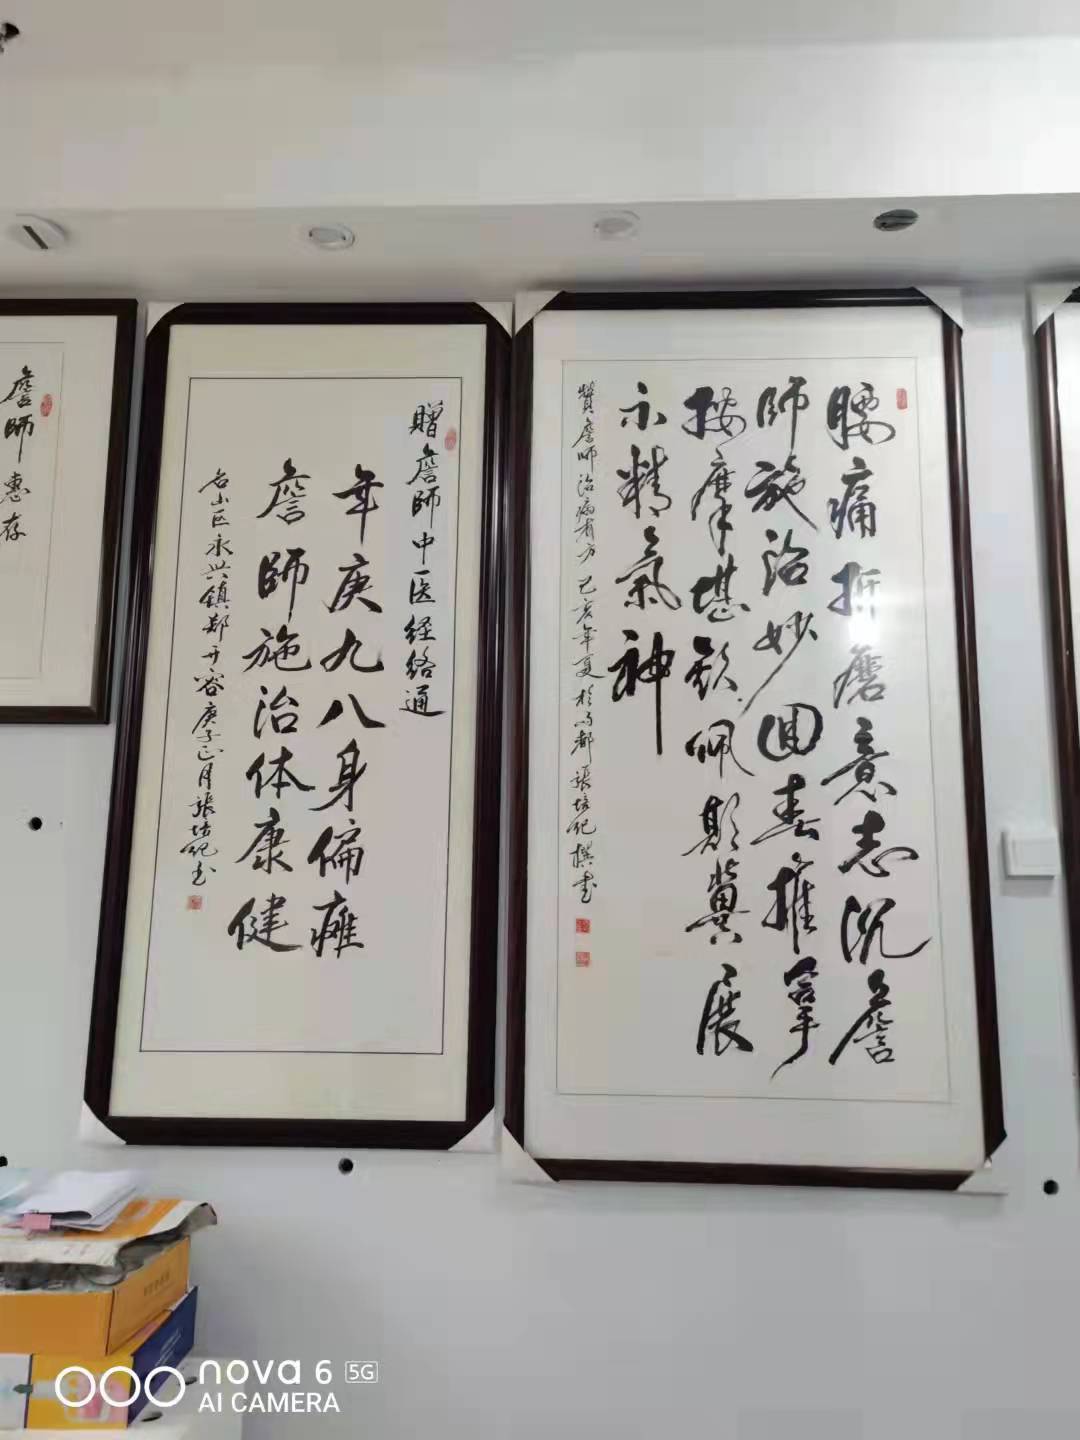 腰痛折磨意志沉詹
師施治妙回春推拿
按摩堪钦佩期冀展
示精氣神
贊詹師治病有方己亥年夏於蓉都張培纪撰書
贈詹師中医经络通
年庚九八身偏瘫
詹師施治体康健
名山区永兴镇郑开容庚子正月張培纪书
詹師惠存
nova 6 5G
AI CAMERA